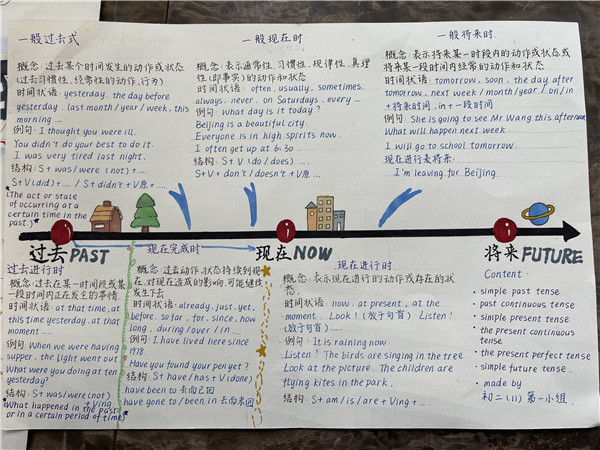 一般过去式
概念：表示过去某个时间发生的动作或状态
(过去习惯性、经常性的动作、行为)
时间状语：yesterday, the day before
yesterday, last month/year/week, this
morning ...
例句：I thought you were ill.
You didn't do your best to do it.
I was very tired last night.
结构：S+was/were (not)+...
S+V(did)+.../S+didn't+V原+....
(The act or state
of occurring at a
certain time in the
past.)
一般现在时
概念：表示通常性、习惯性、规律性、真理
性(即事实)的动作和状态
时间状语：often, usually, sometimes,
always, never, on Saturdays, every ...
例句：What day is it today?
Beijing is a beautiful city.
Everyone is in high spirits now.
I often get up at 6:30
结构：S+V(do/does) ....
S+V+don't/doesn't+V原...
一般将来时
概念：表示将来某一时段内的动作或状态或
将来某一段时间内经常的动作和状态
时间状语：tomorrow, soon, the day after
tomorrow, next week/month/year/on/in
+将来时间，in+一段时间
例句：She is going to see Mr Wang this afternoon.
What will happen next week.
I will go to school tomorrow.
现在进行表将来：
I'm leaving for Beijing.
过去PAST
现在完成时
现在NOW
将来FUTURE
过去进行时
概念：过去在某一时间段或某
一段时间内正在发生的事情
时间状语：at that time, at
this time yesterday, at that
moment ....
例句：When we were having
supper, the light went out
What were you doing at ten
yesterday?
结构：S+was/were(not)
+Ving
(What happened in the past
or in a certain period of time)
概念：过去动作、状态持续到现
在，对现在造成的影响，可能继续
发生下去
时间状语：already, just, yet,
before, so far, for, since, how
long, during/over/in ...
例句：I have lived here since
1978
Have you found your pen yet?
结构：S+have/has+V(done)
have been to 去而已回
have gone to/been in 去而未回
现在进行时
概念：表示现在进行的动作或存在的状
态。
时间状语：now, at present, at the
moment. Look! (放于句首) Listen!
(放于句首) .....
例句：It is raining now.
Listen! The birds are singing in the tree.
Look at the picture. The children are
flying kites in the park.
结构：S+am/is/are+Ving+....
Content:
· simple past tense
· past continuous tense
· simple present tense
· the present continuous
tense
· the present perfect tense
· simple future tense.
· made by
初二(11) 第一小组